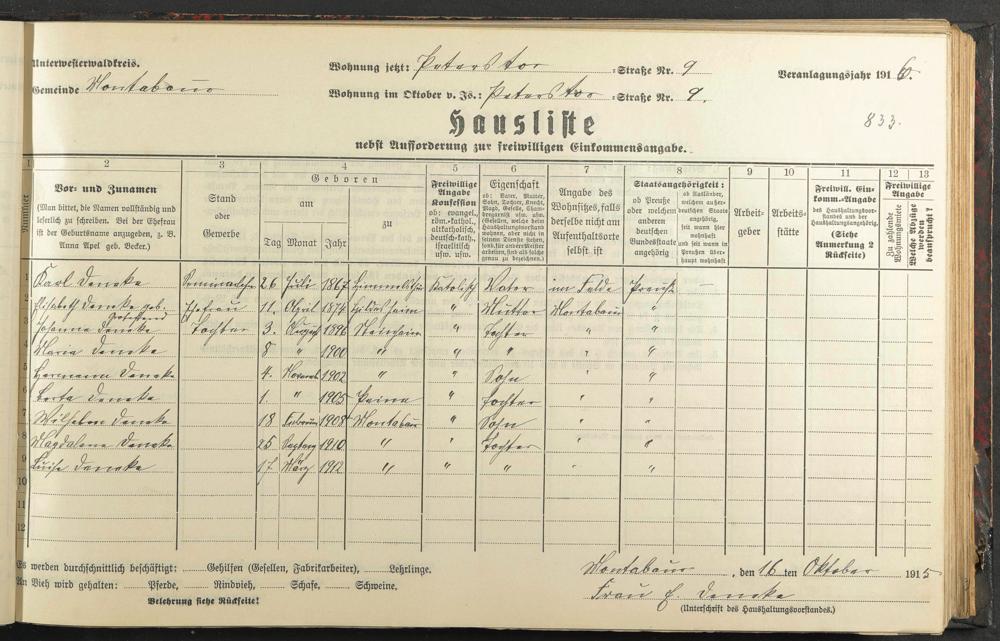 Unterwesterwaldkreis.
Wohnung jetzt: Peterstor Straße Nr. 9
Veranlagungsjahr 1916.
Gemeinde Montabaur
Wohnung im Oktober v. Js.: Peterstor Straße Nr. 9.
833.
Hausliste
nebst Aufforderung zur freiwilligen Einkommensangabe.
1 2 3 4 5 6 7 8 9 10 11 12 13
Nummer
Vor- und Zunamen
(Man bittet, die Namen vollständig und
leserlich zu schreiben. Bei der Ehefrau
ist der Geburtsname anzugeben, z. B.
Anna Apel geb. Becker.)
Stand
oder
Gewerbe
Geboren
am
zu
Tag Monat Jahr
Freiwillige
Angabe
Konfession
ob: evangel.,
röm.-kathol.,
altkatholisch,
deutsch-kath.,
israelitisch
usw. usw.
Eigenschaft
ob: Vater, Mutter,
Sohn, Tochter, Knecht,
Magd, Geselle,
Angabe des
Wohnsitzes, falls
derselbe nicht am
Aufenthaltsorte
selbst ist
Staatsangehörigkeit:
ob Preuße
oder welchem
anderen
deutschen
Bundesstaate
angehörig
ob Ausländer,
welchem außer-
deutschen Staate
angehörig,
seit wann hier
wohnhaft
und seit wann in
Preußen über-
haupt wohnhaft
Arbeit-
geber
Arbeits-
stätte
Freiwill. Ein-
komm.-Angabe
des Haushaltungsvor-
standes und der
Haushaltungsangehörig.
(Siehe
Anmerkung 2
Rückseite)
Freiwillige
Angabe
Zu zahlende
Wohnungsmiete
Welche Abzüge
werden
beansprucht?
1 Karl Deneke 26 Juli 1867 Himmelsthür Katolisch Vater im Felde Preuße —
2 Elisabeth Deneke geb. Ehefrau 11. April 1874 Hildesheim " Mutter Montabaur "
3 Johanna Deneke Tochter 3. August 1896 " Tochter " "
4 Maria Deneke 8 " 1900 " " " " "
5 Hermann Deneke 4. Novemb 1902 " " Sohn " "
6 Berta Deneke 1. " 1905 Peine " Tochter " "
7 Wilhelm Deneke 18 Februar 1908 Montabaur " Sohn " "
8 Magdalena Deneke 25 1910 " " Tochter " "
9 Luise Deneke 17 März 1912 " " " " "
10
11
12
Es werden durchschnittlich beschäftigt: Gehilfen (Gesellen, Fabrikarbeiter), Lehrlinge.
An Vieh wird gehalten: Pferde, Rindvieh, Schafe, Schweine.
Belehrung siehe Rückseite!
Montabaur, den 16ten Oktober 1915
Frau E. Deneke
(Unterschrift des Haushaltungsvorstandes.)